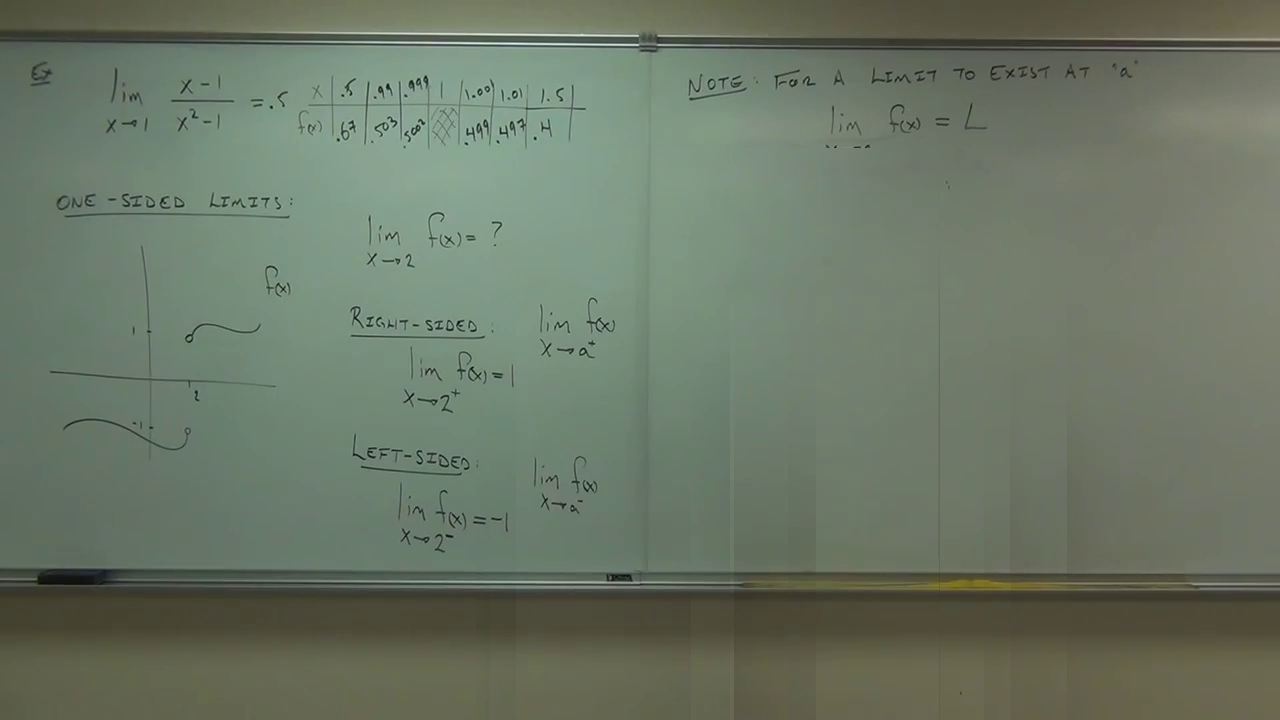 Ex lim x→1 x-1 / x²-1 = .5
x .5 .99 .999 1 1.001 1.01 1.5
f(x) .67 .503 .5002 .499 .497 .4
ONE-SIDED LIMITS:
lim x→2 f(x) = ?
f(x)
1
2
-1
RIGHT-SIDED: lim x→a⁺ f(x)
lim x→2⁺ f(x) = 1
LEFT-SIDED: lim x→a⁻ f(x)
lim x→2⁻ f(x) = -1
NOTE: FOR A LIMIT TO EXIST AT "a"
lim f(x) = L